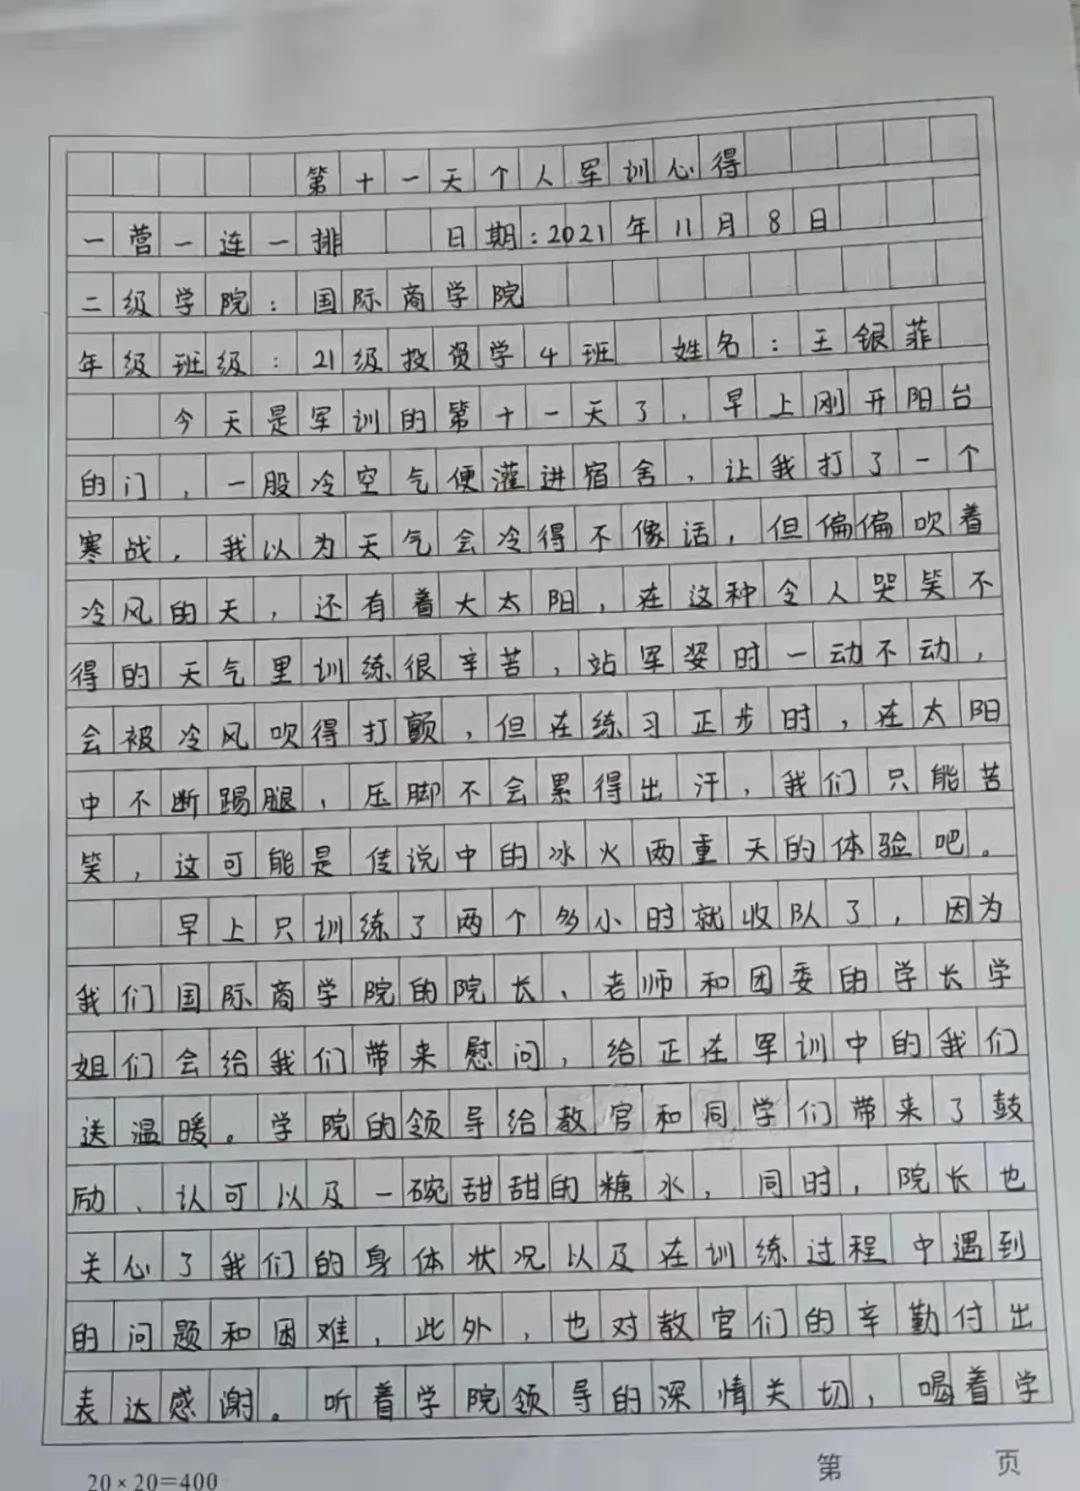 第十一天个人军训心得
一营一连一排 日期:2021年11月8日
二级学院:国际商学院
年级班级:21级投资学4班 姓名:王银菲
今天是军训的第十一天了,早上刚开阳台
的门,一股冷空气便灌进宿舍,让我打了一个
寒战,我以为天气会冷得不像话,但偏偏吹着
冷风的天,还有着大太阳,在这种令人哭笑不
得的天气里训练很辛苦,站军姿时一动不动,
会被冷风吹得打颤,但在练习正步时,在太阳
中不断踢腿、压脚不会累得出汗,我们只能苦
笑,这可能是传说中的冰火两重天的体验吧。
早上只训练了两个多小时就收队了,因为
我们国际商学院的院长、老师和团委的学长学
姐们会给我们带来慰问,给正在军训中的我们
送温暖。学院的领导给教官和同学们带来了鼓
励、认可以及一碗甜甜的糖水,同时,院长也
关心了我们的身体状况以及在训练过程中遇到
的问题和困难,此外,也对教官们的辛勤付出
表达感谢。听着学院领导的深情关切,喝着学
20×20=400
第 页